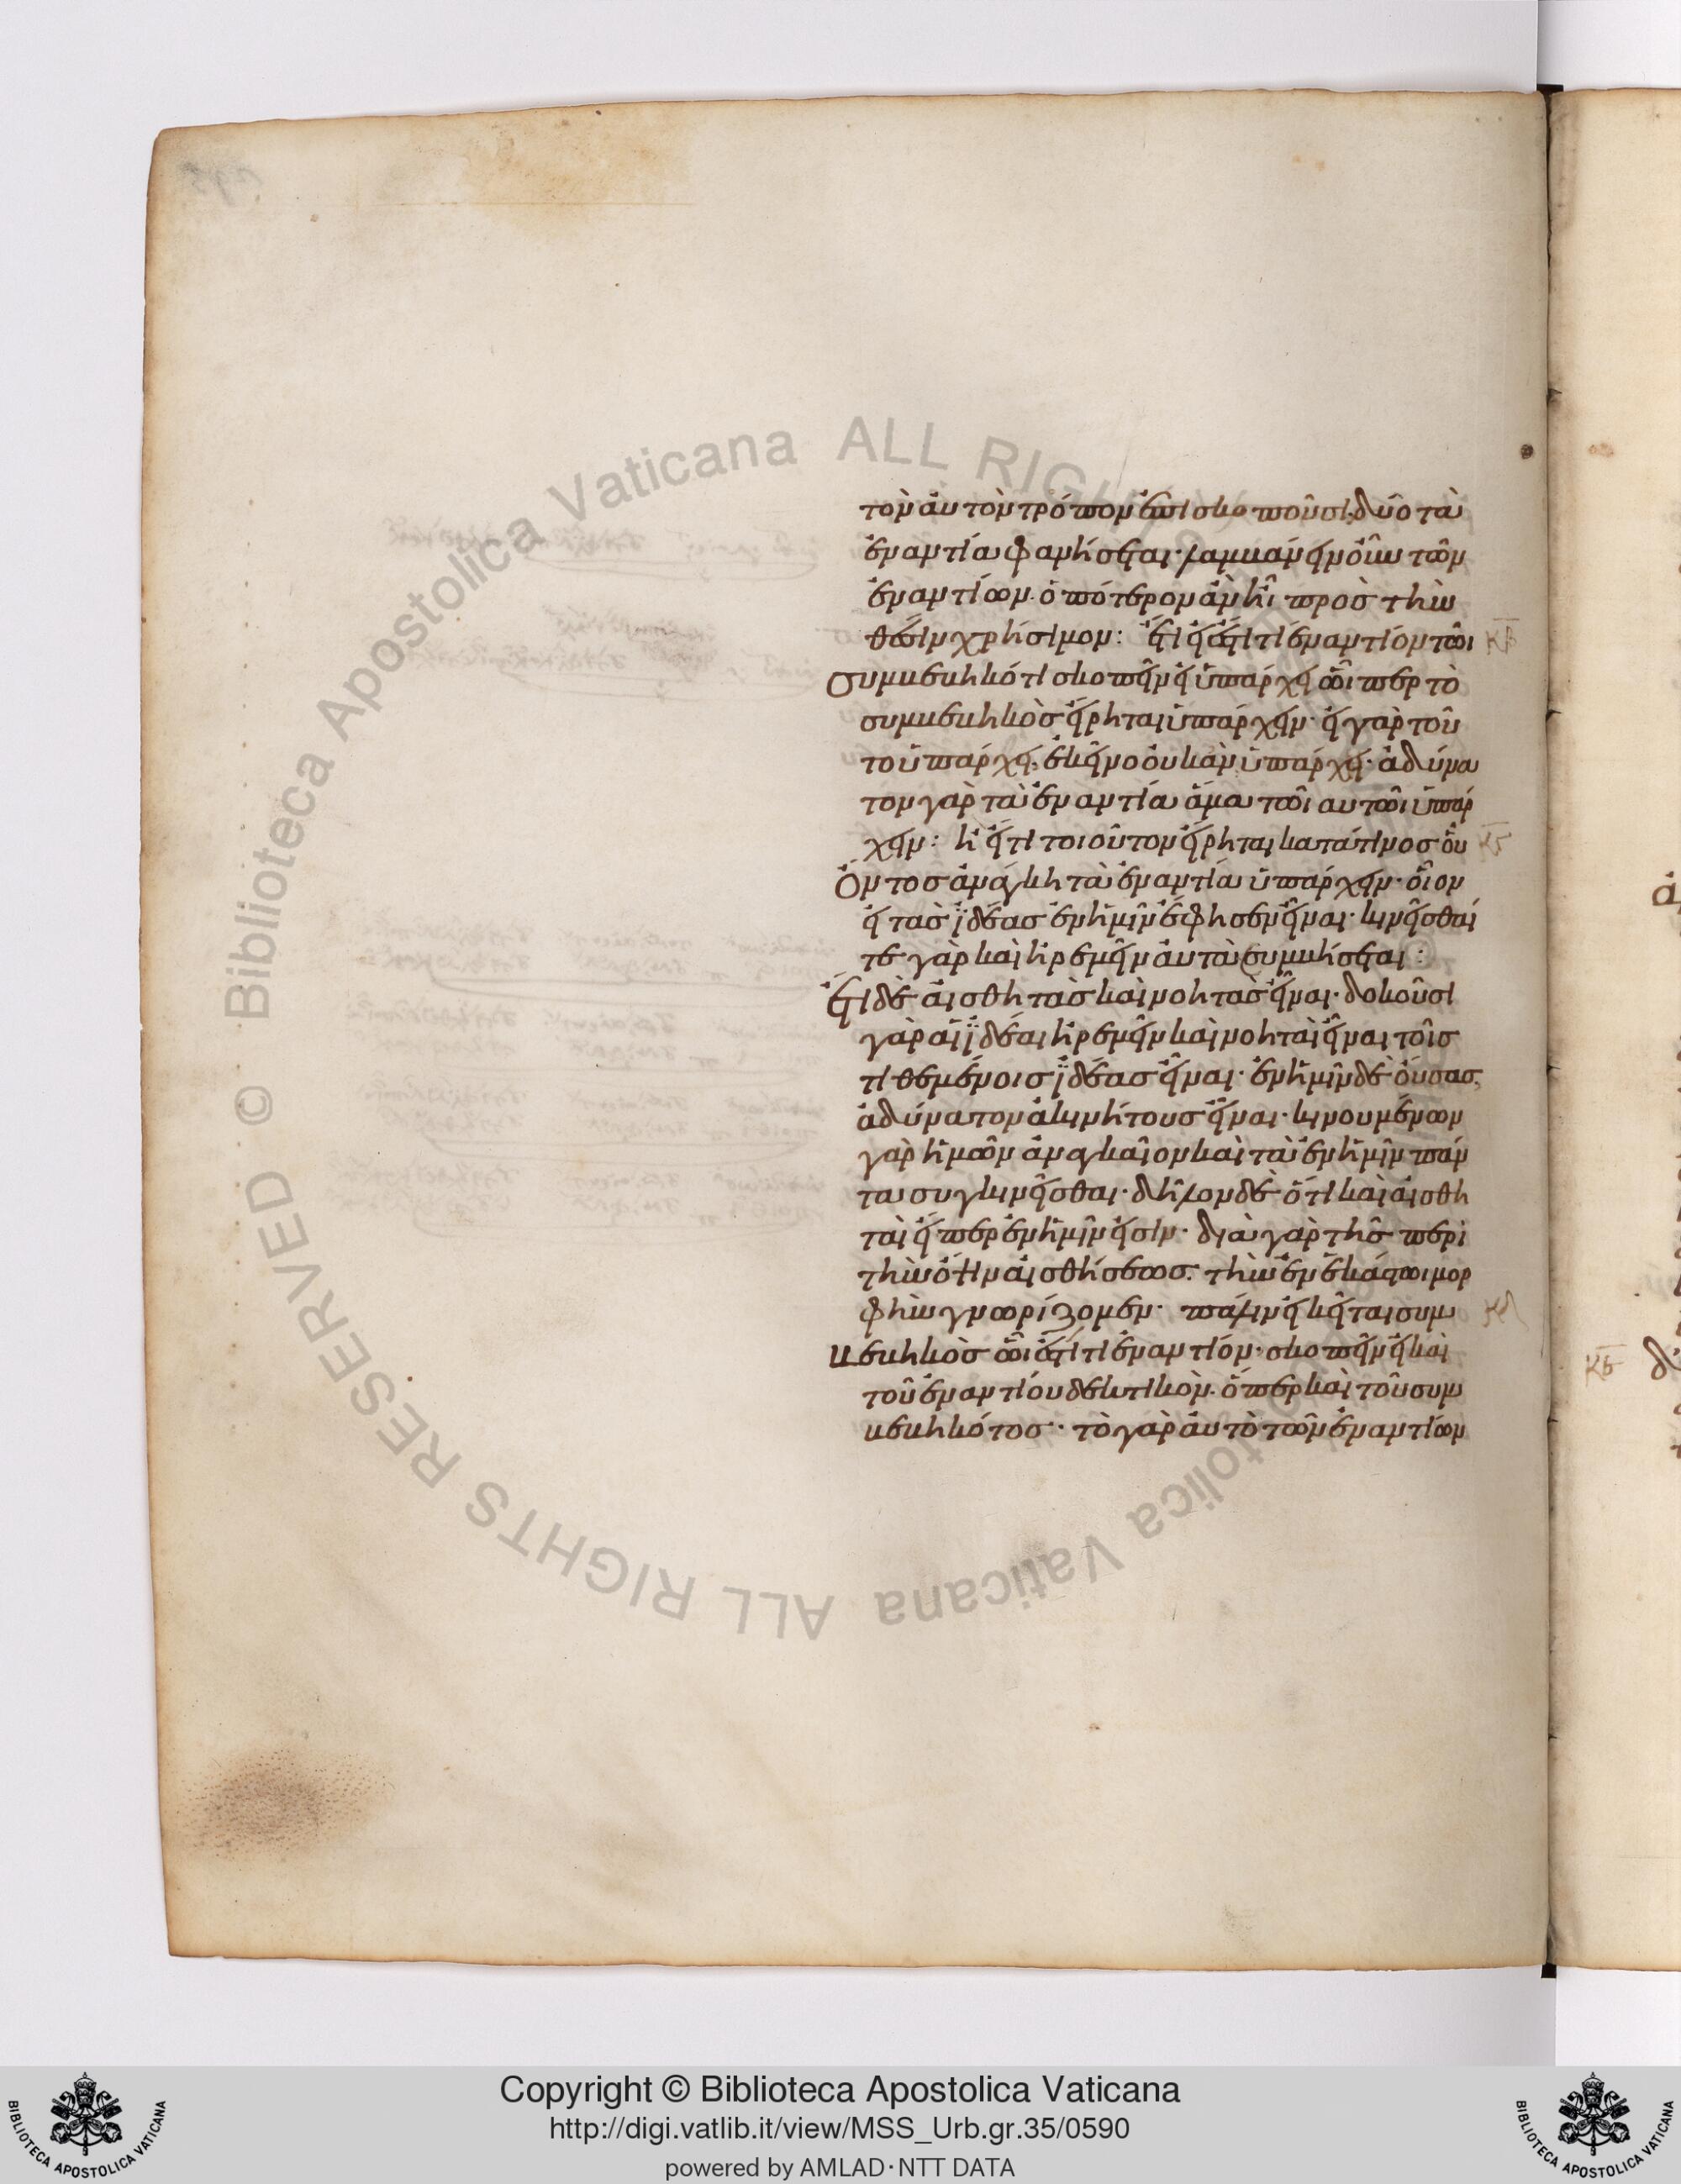 τὸν αὐτὸν τρόπον ἐπισκοποῦσι, δύο τὰ
ἐναντία φανήσεται· λαμβάνειν οὖν τῶν
ἐναντίων. ὁπότερον ἂν ἦι πρὸς τὴν
θέσιν χρήσιμον: ἔτι εἰ ἔστι τι ἐναντίον τῶι κβ
συμβεβηκότι σκοπεῖν εἰ ὑπάρχει ὧιπερ τὸ
συμβεβηκὸς εἴρηται ὑπάρχειν· εἰ γὰρ τοῦ
το ὑπάρχει, ἐκεῖνο οὐκ ἂν ὑπάρχει· ἀδύνα
τον γὰρ τὰ ἐναντία ἅμα τῶι αυτῶι ὑπάρ
χειν: ἢ εἴ τι τοιοῦτον εἴρηται κατά τινος οὗ κγ
ὄντος ἀνάγκη τὰ ἐναντία ὑπάρχειν· οἷον
εἰ τὰς ἰδέας ἐν ἡμῖν ἔφησεν εἶναι· κινεῖσθαί
τε γὰρ καὶ ἠρεμεῖν αὐτὰ συμβήσεται:
ἔτι δὲ αἰσθητὰς καὶ νοητὰς εἶναι· δοκοῦσι
γὰρ αἱ ἰδέαι ἠρεμεῖν καὶ νοηταὶ εἶναι τοῖς
τιθεμένοις ἰδέας εἶναι· ἐν ἡμῖν δὲ οὔσας,
ἀδύνατον ἀκινήτους εἶναι· κινουμένων
γὰρ ἡμῶν ἀναγκαῖον καὶ τὰ ἐν ἡμῖν πάν
τα συγκινεῖσθαι· δῆλον δὲ ὅτι καὶ αἰσθη
ταὶ εἴπερ ἐν ἡμῖν εἰσιν· διὰ γὰρ τῆς περὶ
τὴν ὄψιν αἰσθήσεως. τὴν ἐν ἑκάστωι μορ
φὴν γνωρίζομεν· πάλιν εἰ κεῖται συμ κδ
βεβηκὸς ὧι ἔστι τι ἐναντίον· σκοπεῖν εἰ καὶ
τοῦ ἐναντίου δεκτικὸν. ὅπερ καὶ τοῦ συμ
βεβηκότος· τὸ γὰρ αὐτὸ τῶν ἐναντίων
κε
Copyright © Biblioteca Apostolica Vaticana
http://digi.vatlib.it/view/MSS_Urb.gr.35/0590
powered by AMLAD·NTT DATA
BIBLIOTECA APOSTOLICA VATICANA
BIBLIOTECA APOSTOLICA VATICANA